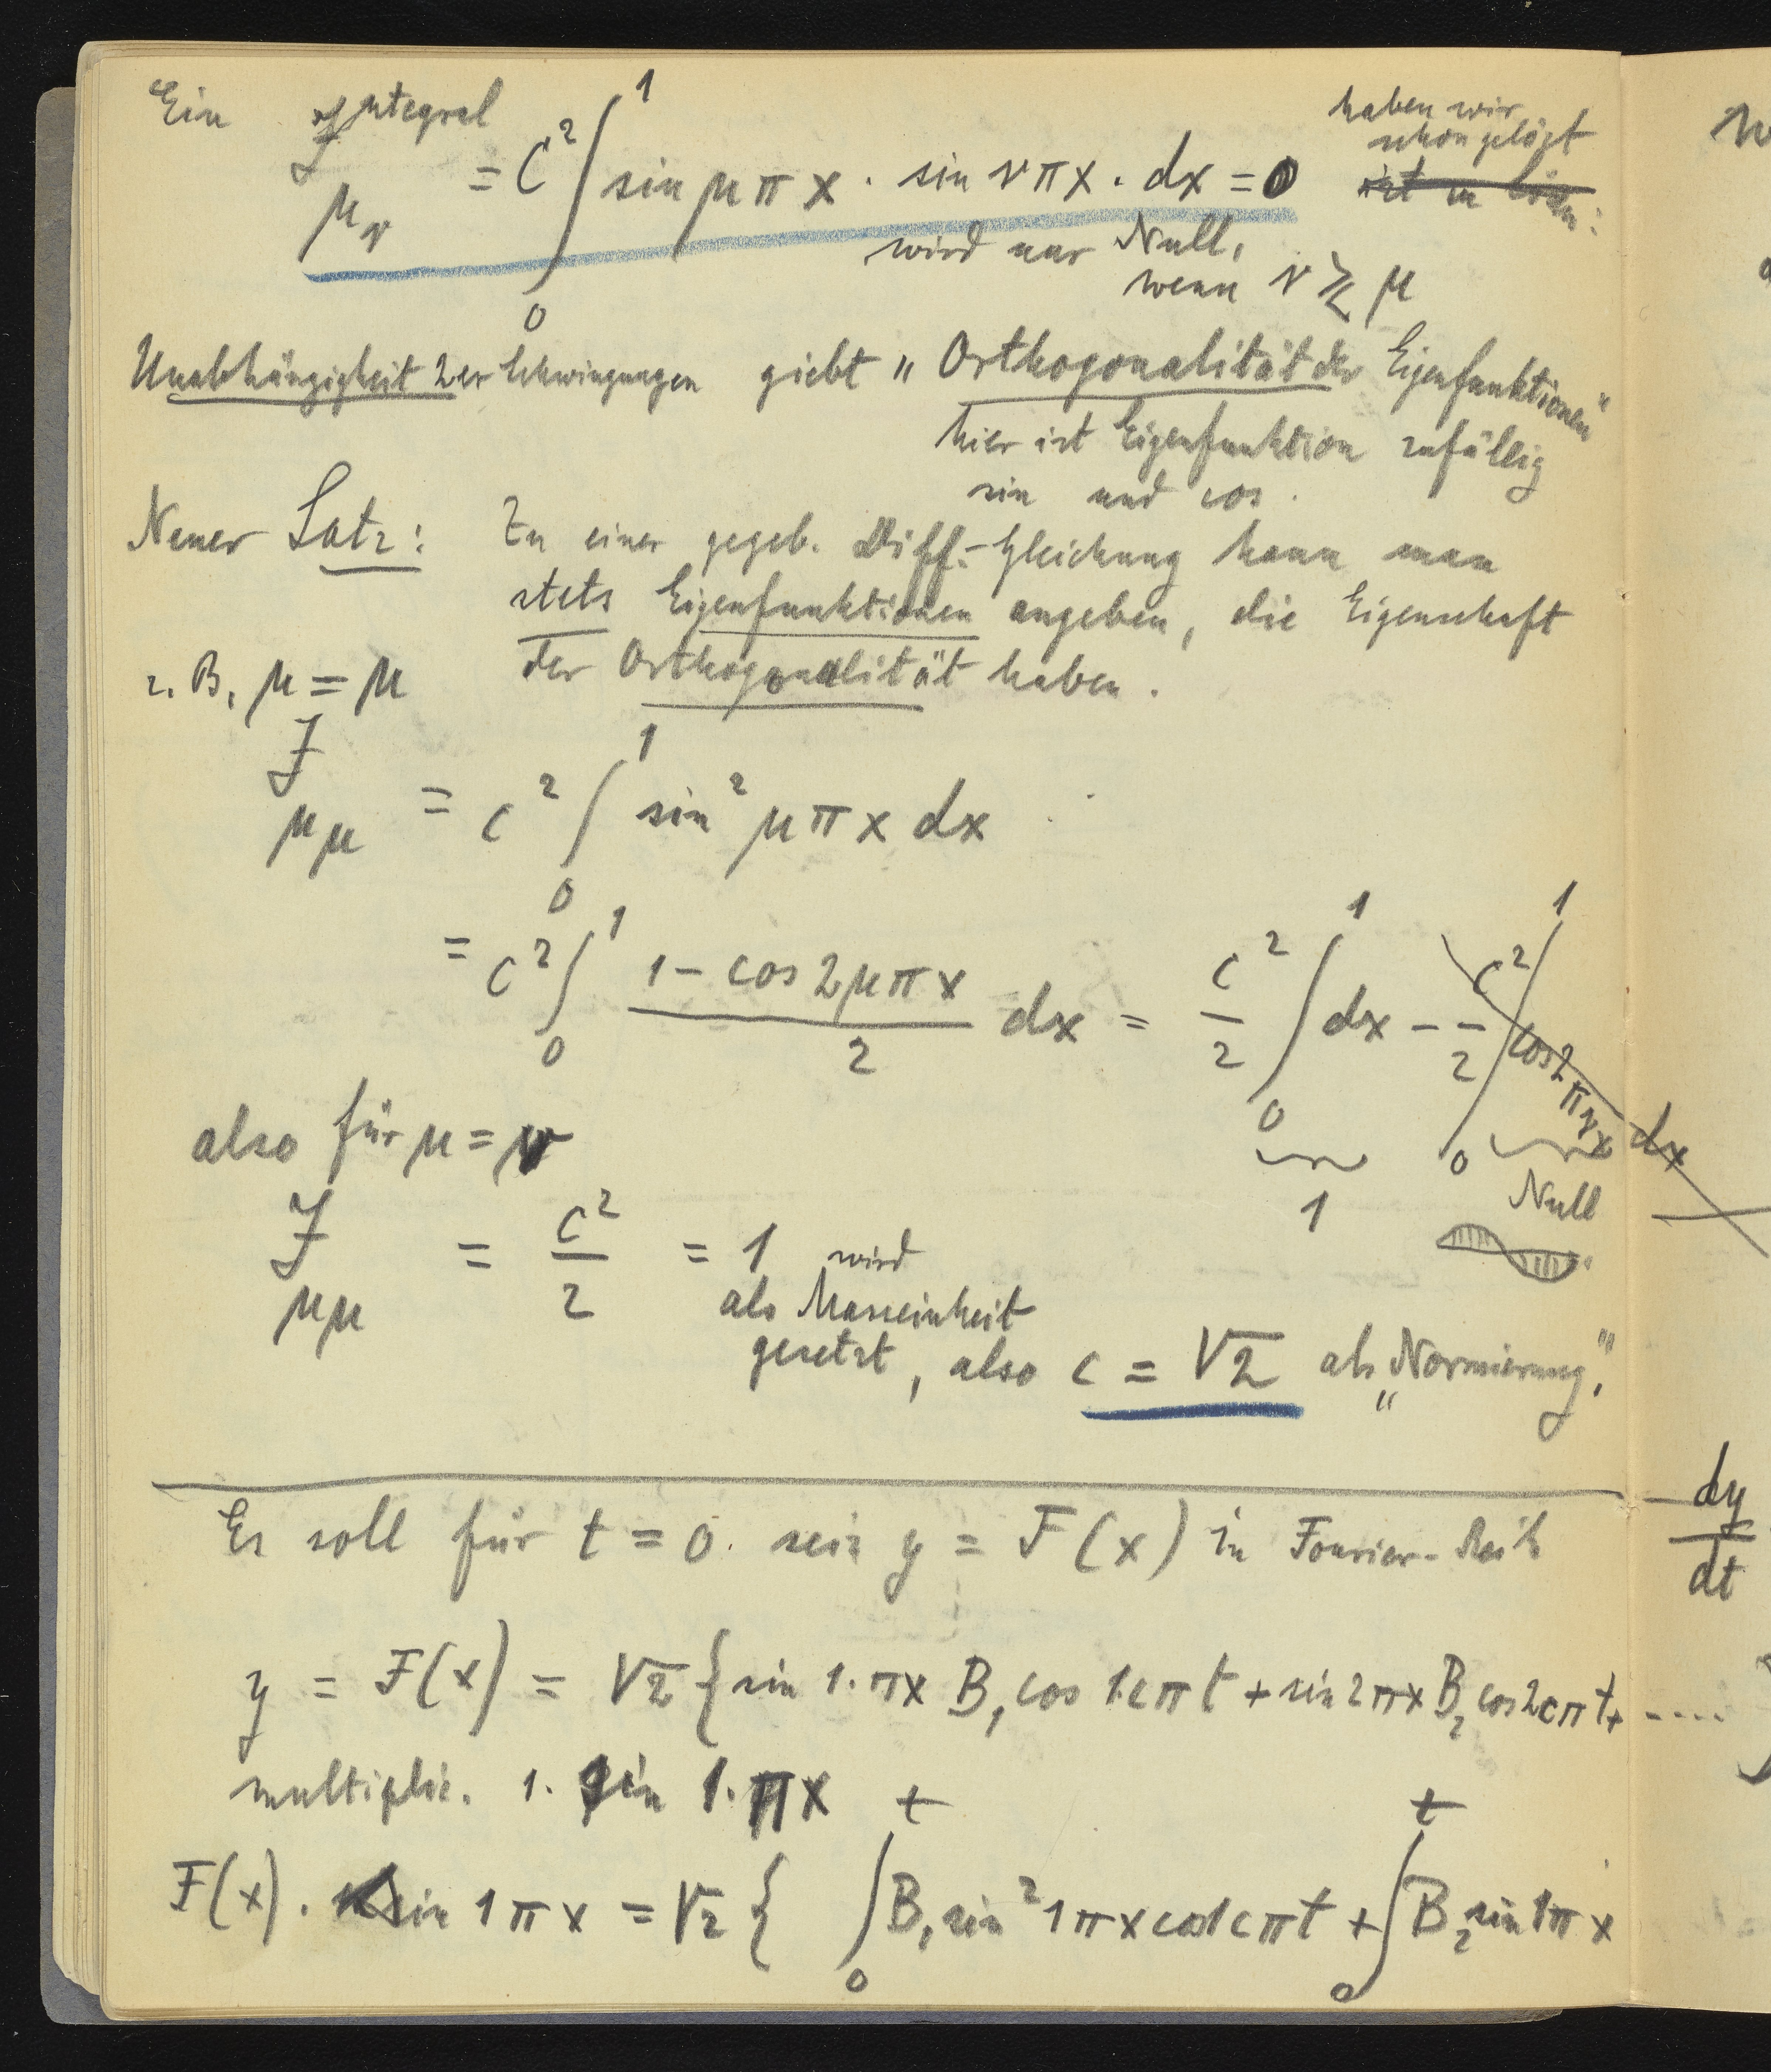 Ein Integral
J
μν = C² ∫₀¹ sin μπx · sin νπx · dx = 0
haben wir
schon gelöst
ist zu lösen:
wird nur Null,
wenn ν ≷ μ
Unabhängigkeit 2er Schwingungen giebt „Orthogonalität der Eigenfunktionen"
hier ist Eigenfunktion zufällig
sin und cos.
Neuer Satz: Zu einer gegeb. Diff.-Gleichung kann man
stets Eigenfunktionen angeben, die Eigenschaft
der Orthogonalität haben.
z. B. μ = μ
J
μμ = c² ∫₀¹ sin² μπx dx
= c² ∫₀¹ (1 - cos 2μπx)/2 dx = c²/2 ∫₀¹ dx - c²/2 ∫₀¹ cos 2πνx dx
1
Null
also für μ = ν
J
μμ = c²/2 = 1 wird
als Masseinheit
gesetzt, also c = √2 als „Normierung".
Es soll für t = 0 sein y = F(x) in Fourier-Reih
y = F(x) = √2 { sin 1·πx B₁ cos 1cπt + sin 2πx B₂ cos 2cπt + ....
multiplic. 1. sin 1·πx
F(x) · sin 1πx = √2 { ∫₀ᵗ B₁ sin² 1πx cos 1cπt + ∫₀ᵗ B₂ sin 1πx
dy
dt